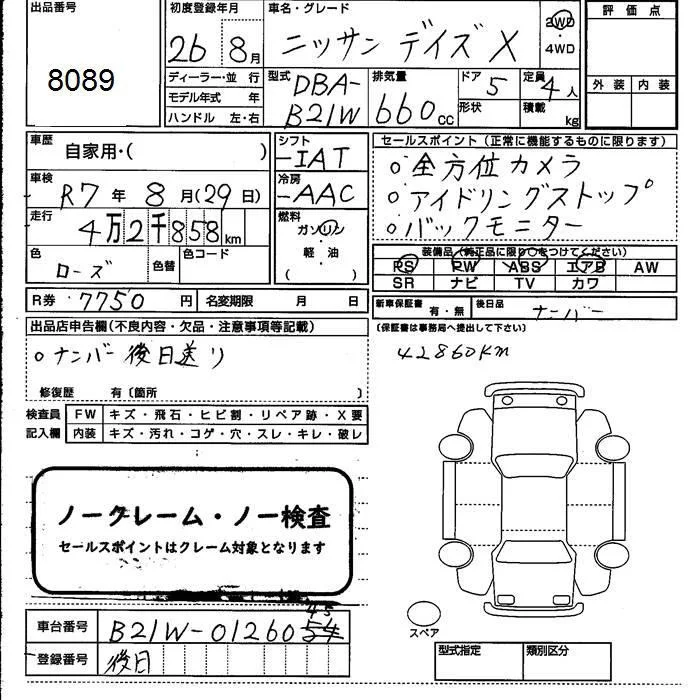 出品番号
8089
初度登録年月
26 8月
ディーラー・並 行
モデル年式 年
ハンドル 左・右
車名・グレード
ニッサン デイズ X
2WD
・
4WD
型式
DBA-
B21W
排気量
660cc
ドア 5
形状
定員 4人
積載 kg
評 価 点
外 装 内 装
車歴
自家用・( )
車検
R7 年 8 月(29 日)
走行
4万2千858km
色
ローズ
色替
色コード
シフト
-IAT
冷房
-AAC
燃料
ガソリン
・
軽・油
( )
セールスポイント (正常に機能するものに限ります)
○全方位カメラ
○アイドリングストップ
○バックモニター
装備品(純正品に限り○をつけてください)
PS PW ABS エアB AW
SR ナビ TV カワ
R券 7750 円 名変期限 月 日
新車保証書
有・無
後日品
ナンバー
(保証書は事務局へ提出して下さい)
出品店申告欄(不良内容・欠品・注意事項等記載)
○ナンバー後日送り
42860km
修復歴 有〔箇所 〕
検査員 FW キズ・飛石・ヒビ割・リペア跡・X要
記入欄 内装 キズ・汚れ・コゲ・穴・スレ・キレ・破レ
ノークレーム・ノー検査
セールスポイントはクレーム対象となります
スペア
45
車台番号 B21W-01260 54
登録番号 後日
型式指定 類別区分